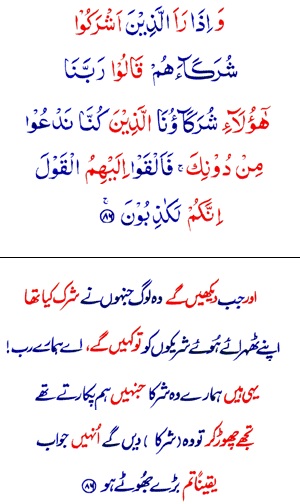 وَ اِذَا رَاَ الَّذِیْنَ اَشْرَكُوْا
شُرَكَآءَهُمْ قَالُوْا رَبَّنَا
هٰۤؤُلَآءِ شُرَكَآؤُنَا الَّذِیْنَ كُنَّا نَدْعُوْا
مِنْ دُوْنِكَ ۚ فَاَلْقَوْا اِلَیْهِمُ الْقَوْلَ
اِنَّكُمْ لَكٰذِبُوْنَ ۚ ﴿۸۶﴾
اور جب دیکھیں گے وہ لوگ جنہوں نے شرک کیا تھا
اپنے ٹھہرائے ہُوئے شریکوں کو تو کہیں گے، اے ہمارے رب!
یہی ہیں ہمارے وہ شرکا جنہیں ہم پکارتے تھے
تجھے چھوڑ کر تو وہ (شرکا) دیں گے اُنہیں جواب
یقیناً تم بڑے جھُوٹے ہو ﴿۸۶﴾